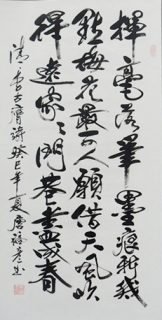 揮毫落筆墨痕新幾
點梅花最可人願借天風吹
得遠家々門巷盡成春
清 詩癸巳年夏